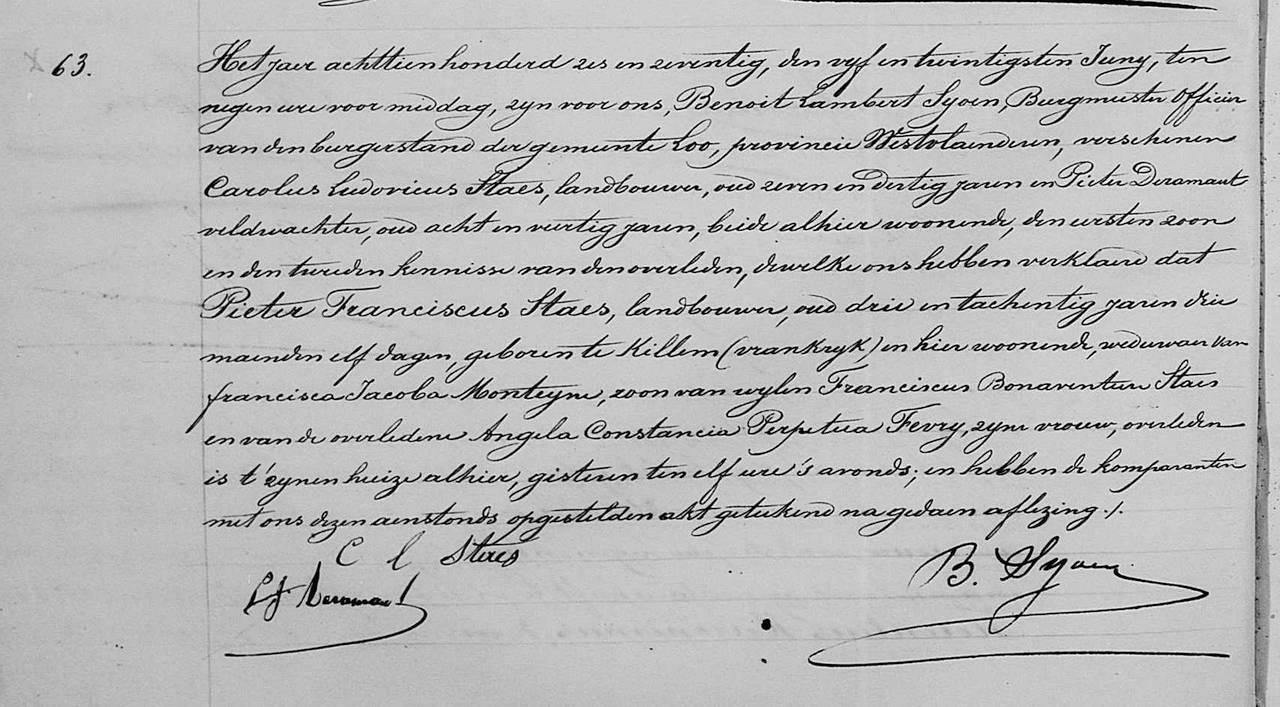 63.
Het jaer achttien honderd zes en zeventig, den vyf en twintigsten Juny, ten
negen ure voor middag, zyn voor ons, Benoit Lambert Syoen, Burgmeester Officier
van den burgerstand der gemeente Loo, provincie Westvlaenderen, verschenen
Carolus Ludovicus Staes, landbouwer, oud zeven en dertig jaren en Pieter Deramaut
veldwachter, oud acht en veertig jaren, beide alhier woonende, den eersten zoon
en den tweeden kennisse van den overleden, dewelke ons hebben verklaerd dat
Pieter Franciscus Staes, landbouwer, oud drie en tachentig jaren drie
maenden elf dagen, geboren te Killem (vrankryk) en hier woonende, weduwaer van
francisca Jacoba Monteyne, zoon van wylen Franciscus Bonaventure Staes
en van de overledene Angela Constancia Perpetua Fevry, zyne vrouw, overleden
is t'zynen huize alhier, gisteren ten elf ure 's avonds; en hebben de komparanten
met ons dezen aenstonds opgestelden akt geteekend na gedaen aflezing ./.
C L Staes
B. Syoen
Deramaut